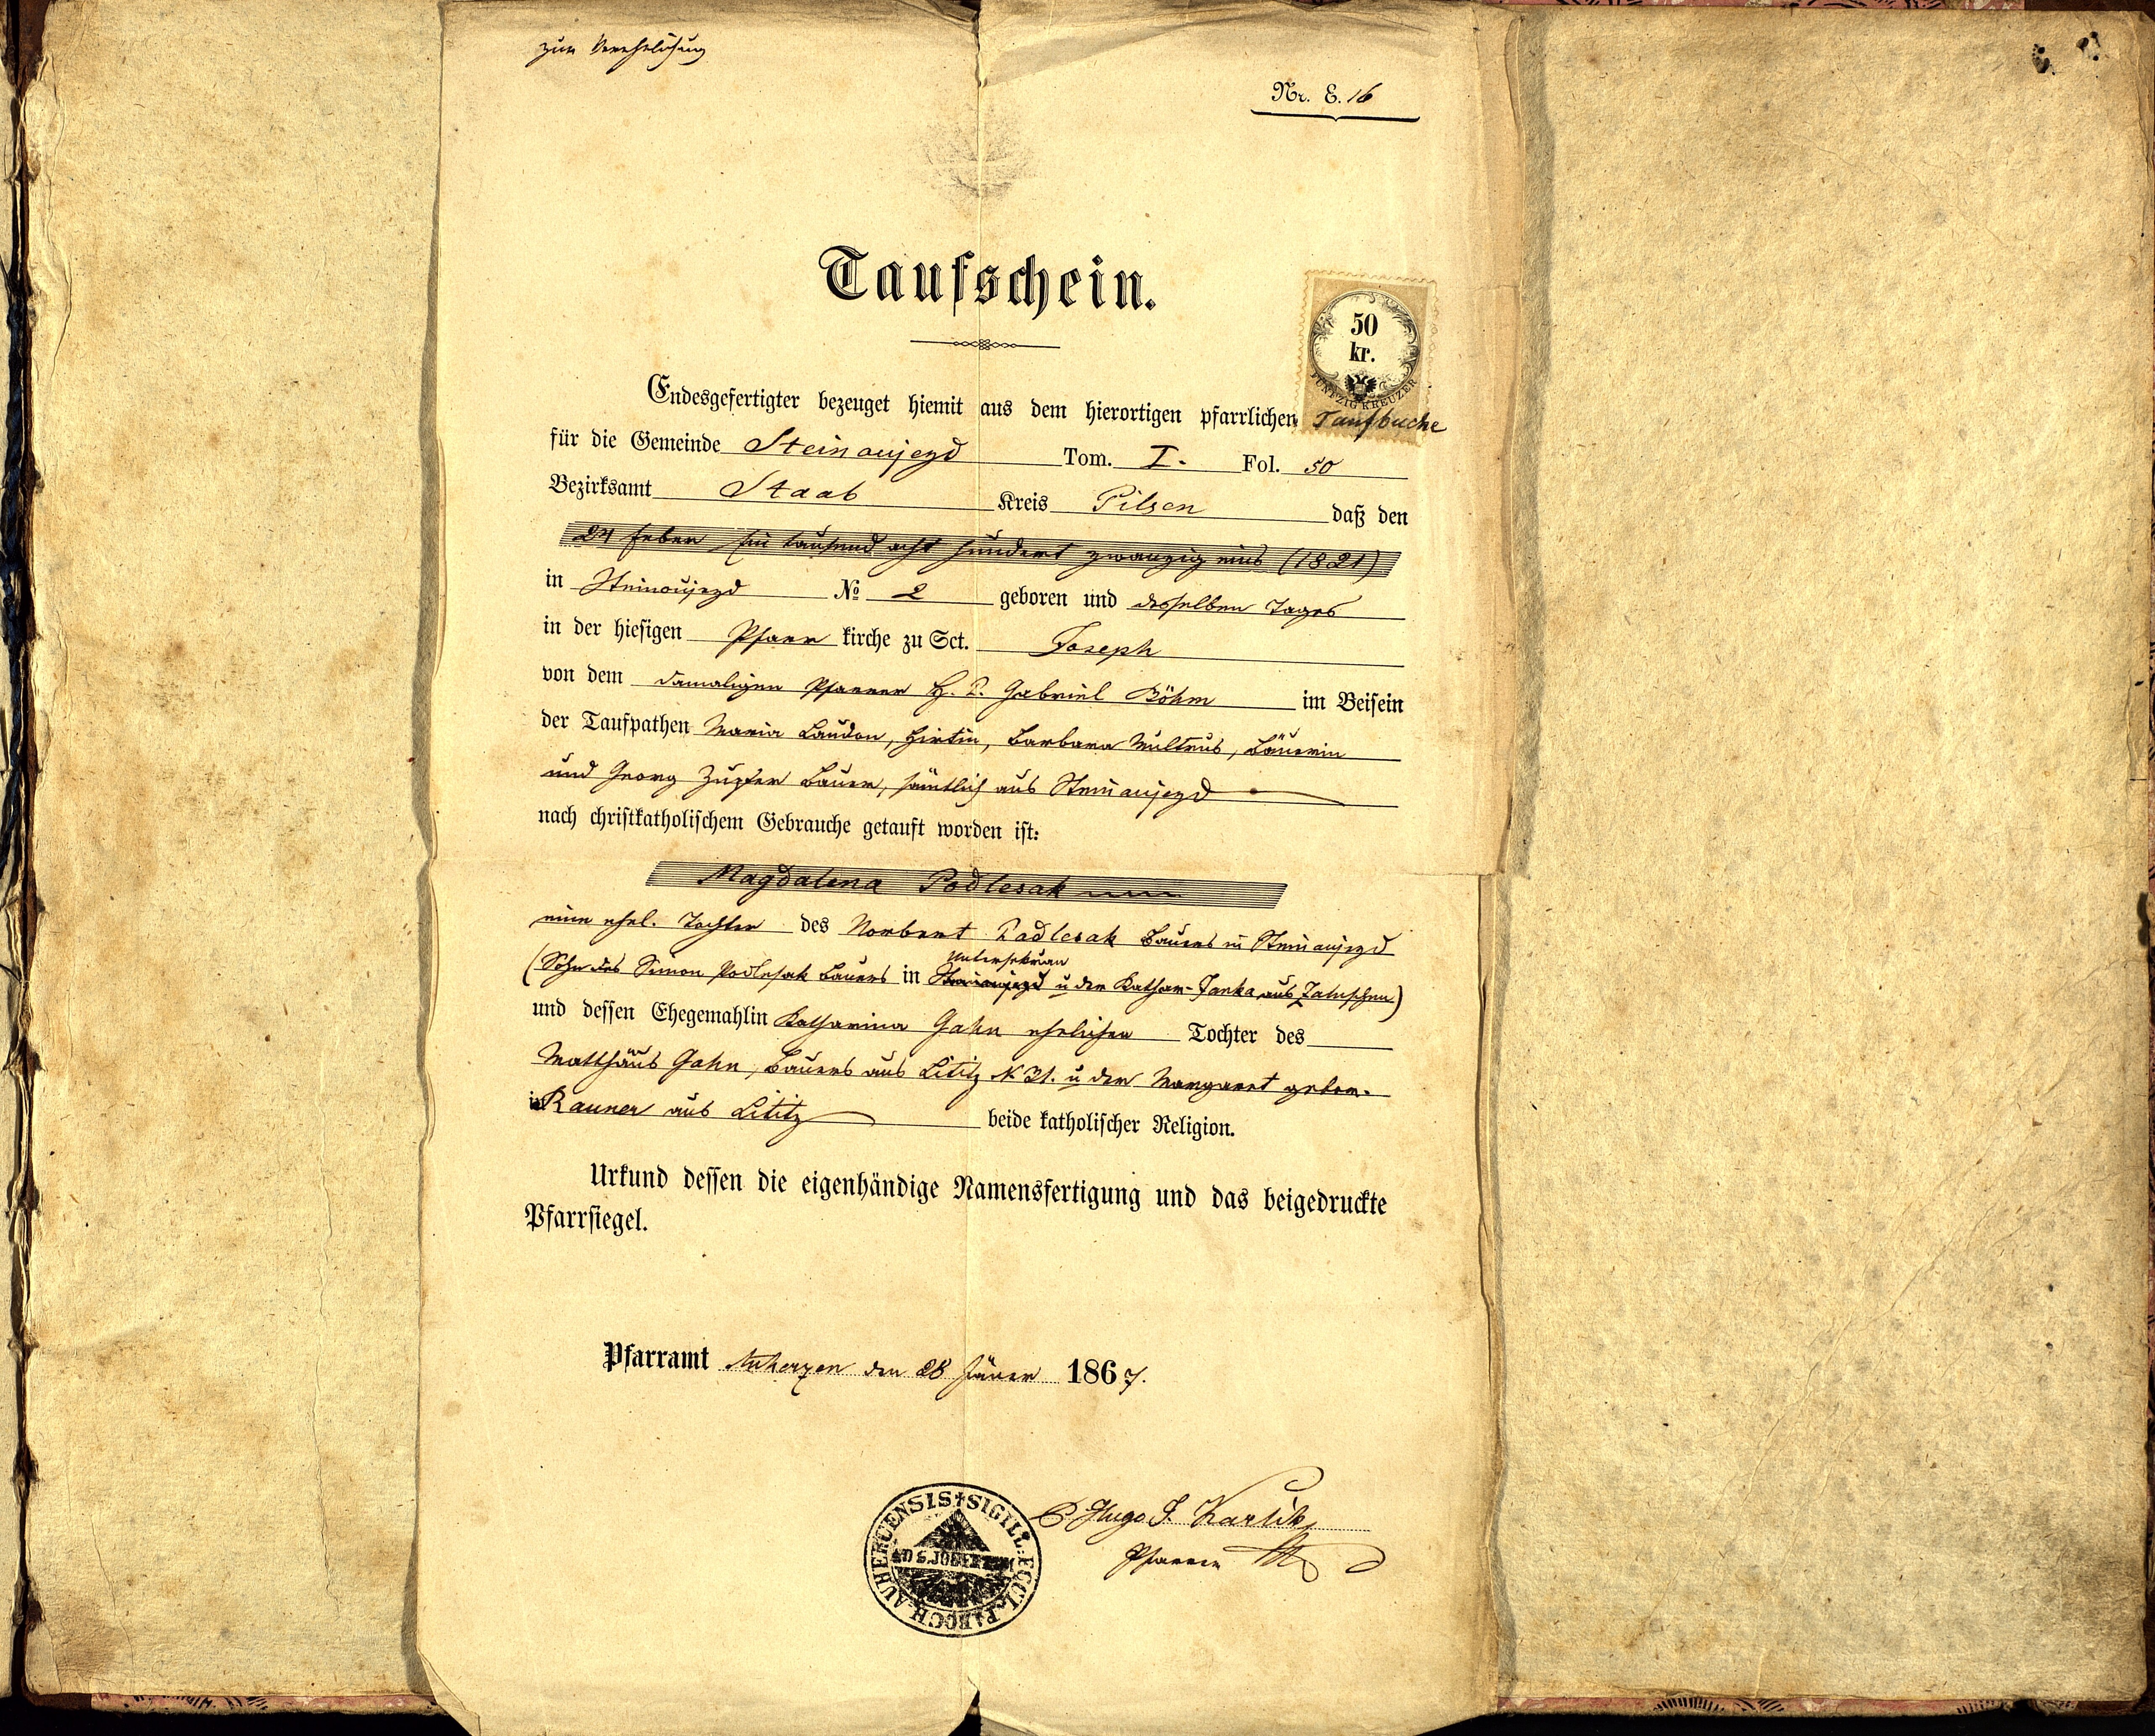 zur Verehelichung
Nr. E. 16
Taufschein.
50
kr.
FÜNFZIG KREUZER
Endesgefertigter bezeuget hiemit aus dem hierortigen pfarrlichen Taufbuche
für die Gemeinde Steinaujezd Tom. I. Fol. 50
Bezirksamt Staab Kreis Pilsen daß den
24 Feber Ein tausend acht hundert zwanzig eins (1821)
in Steinoujezd No 2 geboren und desselben Tages
in der hiesigen Pfarr kirche zu Sct. Joseph
von dem damaligen Pfarrer H. P. Gabriel Böhm im Beisein
der Taufpathen Maria Laudon, Hirtin, Barbara Multrus, Bäuerin
und Georg Zupfer Bauer, sämtlich aus Steinaujezd
nach christkatholischem Gebrauche getauft worden ist:
Magdalena Podlesak
eine ehel. Tochter des Norbert Podlesak Bauers in Steinaujezd
Untersekřan
(Sohn des Simon Podlesak Bauers in Steinaujezd u der Kathar. Janka aus Zaluschen)
und dessen Ehegemahlin Katharina Gahn ehelichen Tochter des
Matthäus Gahn, Bauers aus Lititz N 31. u der Margaret gebor.
in Rauner aus Lititz beide katholischer Religion.
Urkund dessen die eigenhändige Namensfertigung und das beigedruckte
Pfarrsiegel.
Pfarramt Auherzen den 28 Jäner 1867.
P Hugo J. Karlik
Pfarrer
SIGILL: ECCL. PAROCH. AUHERCENSIS